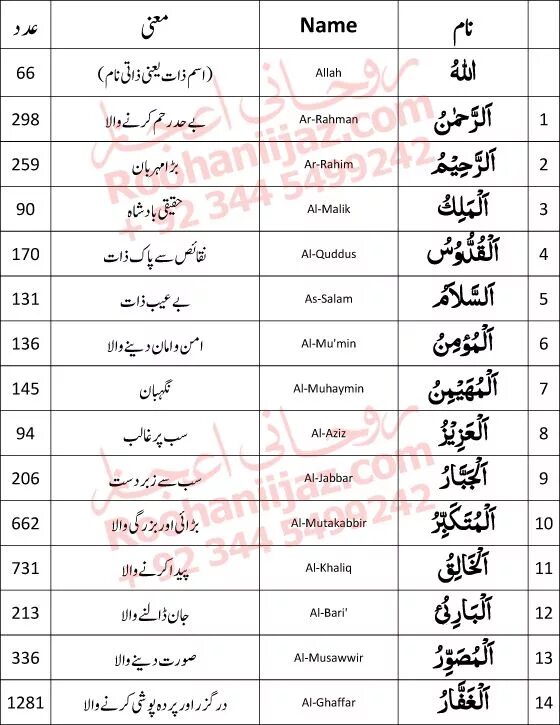 نام Name معنی عدد
اَللهُ Allah (اسم ذات یعنی ذاتی نام) 66
1 اَلرَّحْمٰنُ Ar-Rahman بے حد رحم کرنے والا 298
2 اَلرَّحِيْمُ Ar-Rahim بڑا مہربان 259
3 اَلْمَلِكُ Al-Malik حقیقی بادشاہ 90
4 اَلْقُدُّوْسُ Al-Quddus نقائص سے پاک ذات 170
5 اَلسَّلَامُ As-Salam بے عیب ذات 131
6 اَلْمُؤْمِنُ Al-Mu'min امن و امان دینے والا 136
7 اَلْمُهَيْمِنُ Al-Muhaymin نگہبان 145
8 اَلْعَزِيْزُ Al-Aziz سب پر غالب 94
9 اَلْجَبَّارُ Al-Jabbar سب سے زبردست 206
10 اَلْمُتَكَبِّرُ Al-Mutakabbir بڑائی اور بزرگی والا 662
11 اَلْخَالِقُ Al-Khaliq پیدا کرنے والا 731
12 اَلْبَارِئُ Al-Bari' جان ڈالنے والا 213
13 اَلْمُصَوِّرُ Al-Musawwir صورت دینے والا 336
14 اَلْغَفَّارُ Al-Ghaffar درگزر اور پردہ پوشی کرنے والا 1281
روحانی اعجاز
Roohaniijaz.com
+ 92 344 5499242
روحانی اعجاز
Roohaniijaz.com
+ 92 344 5499242